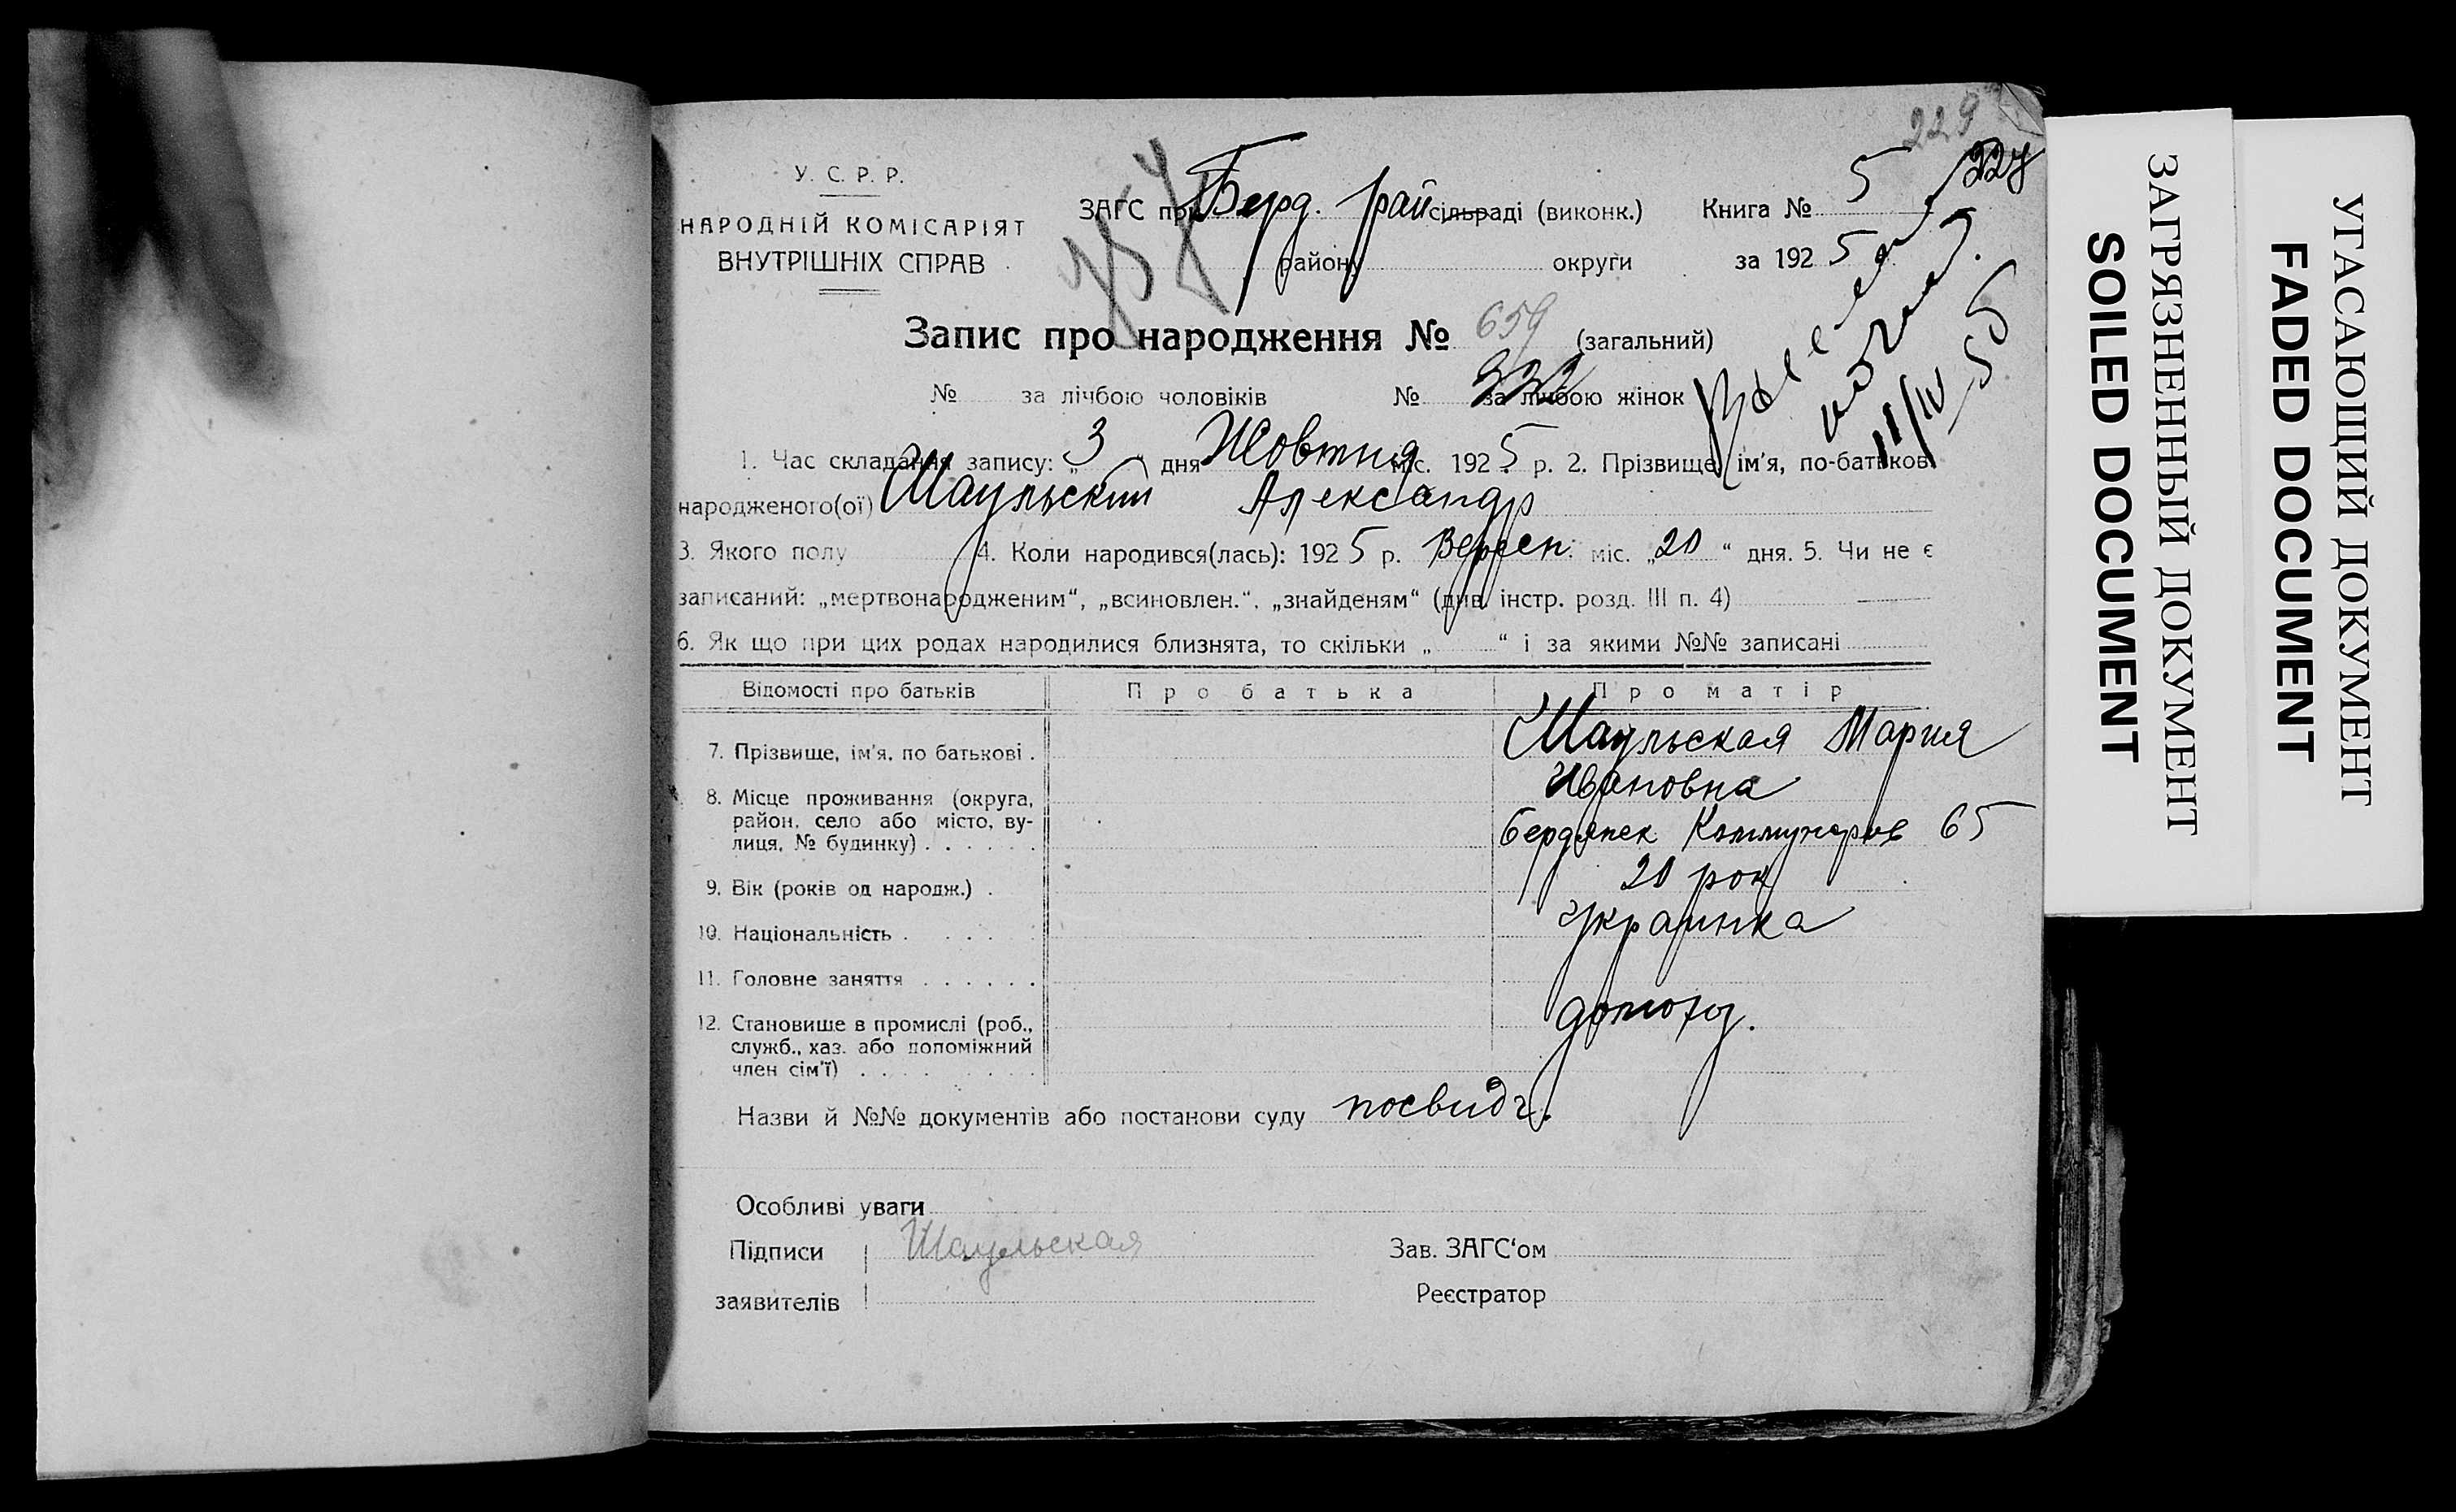 229
У. С. Р. Р.
НАРОДНІЙ КОМІСАРІЯТ
ВНУТРІШНІХ СПРАВ
ЗАГС при Берд. рай сільраді (виконк.) Книга № 5
району округи за 1925
Запис про народження № 659 (загальний)
№ за лічбою чоловіків № 332 за лічбою жінок
11/IV 55
1. Час складання запису: „3“ дня Жовтня міс. 1925 р. 2. Прізвище, ім'я, по-батькові
народженого(ої) Шаульский Александр
3. Якого полу 4. Коли народився(лась): 1925 р. Вересн. міс. „20“ дня. 5. Чи не є
записаний: „мертвонародженим“, „всиновлен.“, „знайденям“ (див. інстр. розд. III п. 4)
6. Як що при цих родах народилися близнята, то скільки „ “ і за якими №№ записані
Відомості про батьків Про батька Про матір
7. Прізвище, ім'я, по батькові . Шаульская Мария
Ивановна
8. Місце проживання (округа,
район, село або місто, ву-
лиця, № будинку) . . . . . . Бердянск Коммунаров 65
9. Вік (років од народж.) . 20 рок
10. Національність . . . . . Украинка
11. Головне заняття . . . . . .
12. Становище в промислі (роб.,
служб., хаз. або допоміжний
член сім'ї) . . . . . . . .
домохоз.
Назви й №№ документів або постанови суду посвидч.
Особливі уваги
Підписи Шаульская Зав. ЗАГС'ом
заявителів Реєстратор
ЗАГРЯЗНЕННЫЙ ДОКУМЕНТ
SOILED DOCUMENT
УГАСАЮЩИЙ ДОКУМЕНТ
FADED DOCUMENT